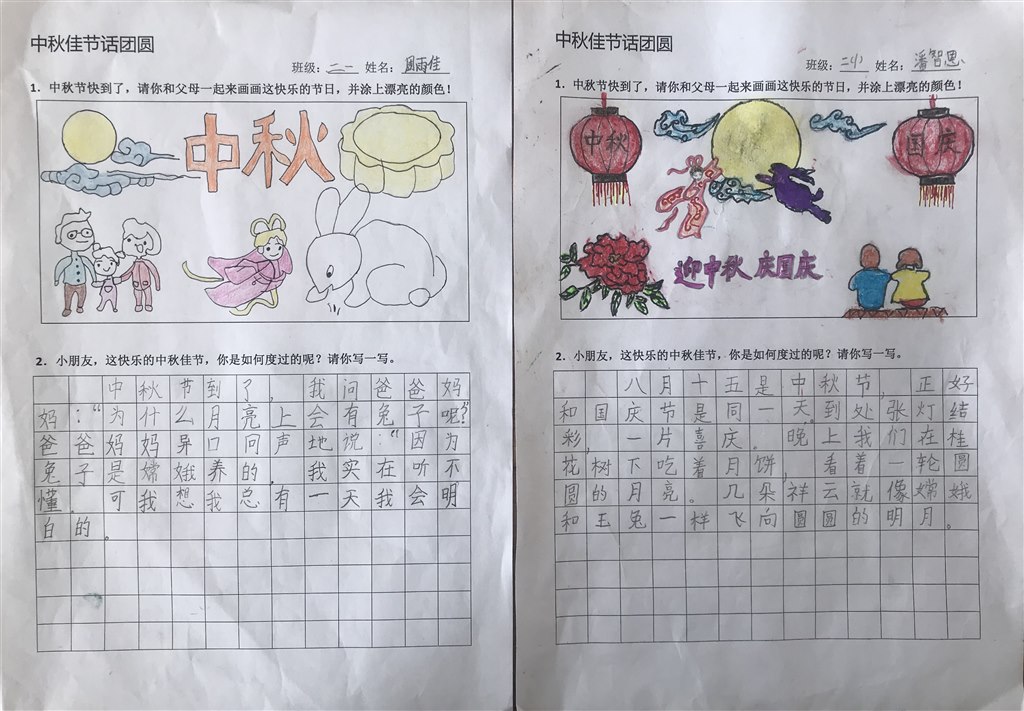 中秋佳节话团圆
班级：二一 姓名：周雨佳
1．中秋节快到了，请你和父母一起来画画这快乐的节日，并涂上漂亮的颜色！
中秋
2．小朋友，这快乐的中秋佳节，你是如何度过的呢？请你写一写。
中秋节到了，我问爸爸妈
妈：“为什么月亮上会有兔子呢？”
爸爸妈妈异口同声地说：“因为
兔子是嫦娥养的。我实在听不
懂。可我想我总有一天我会明
白的。
中秋佳节话团圆
班级： 姓名：潘智恩
1．中秋节快到了，请你和父母一起来画画这快乐的节日，并涂上漂亮的颜色！
中秋
国庆
迎中秋 庆国庆
2．小朋友，这快乐的中秋佳节，你是如何度过的呢？请你写一写。
八月十五是中秋节，正好
和国庆节是同一天。到处张灯结
彩，一片喜庆。晚上我们在桂
花树下吃着月饼，看着一轮圆
圆的月亮。几朵祥云就像嫦娥
和玉兔一样飞向圆圆的明月。